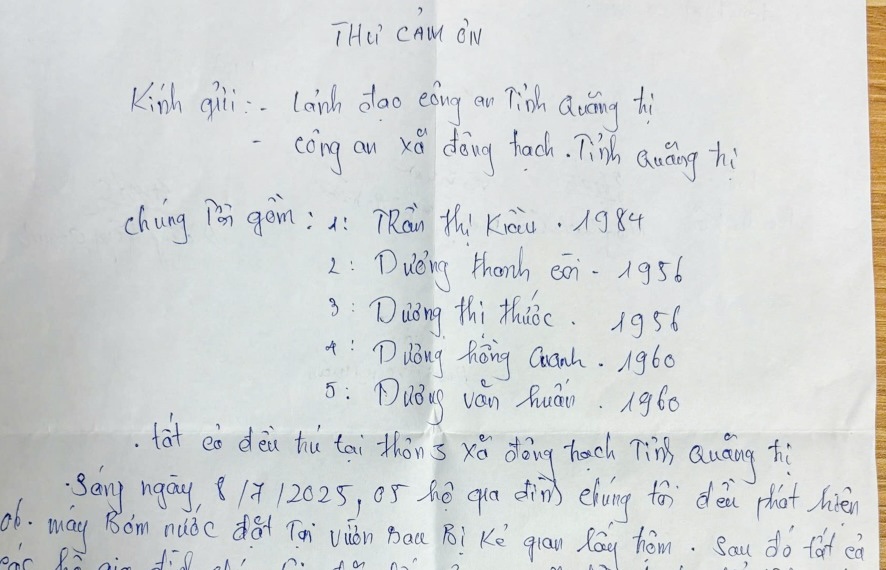 THƯ CẢM ƠN
Kính gửi: - Lảnh đạo công an Tỉnh Quãng trị
- công an xã đông trạch. Tỉnh Quãng trị
chúng Tôi gồm: 1: TRần thị Kiều. 1984
2: Dương thanh côi - 1956
3: Dương thị thước. 1956
4: Dương hồng 1960
5: Dương văn huấn. 1960
. tất cả đều trú tại thôn 5 xã đông trạch Tỉnh Quãng trị
. Sáng ngày 8/7/2025, 05 hộ gia đình chúng tôi đều phát hiện
06. máy Bơm nước đặt Tại vườn sau Bị Kẻ gian lấy trộm. Sau đó tất cả
các hộ gia đình